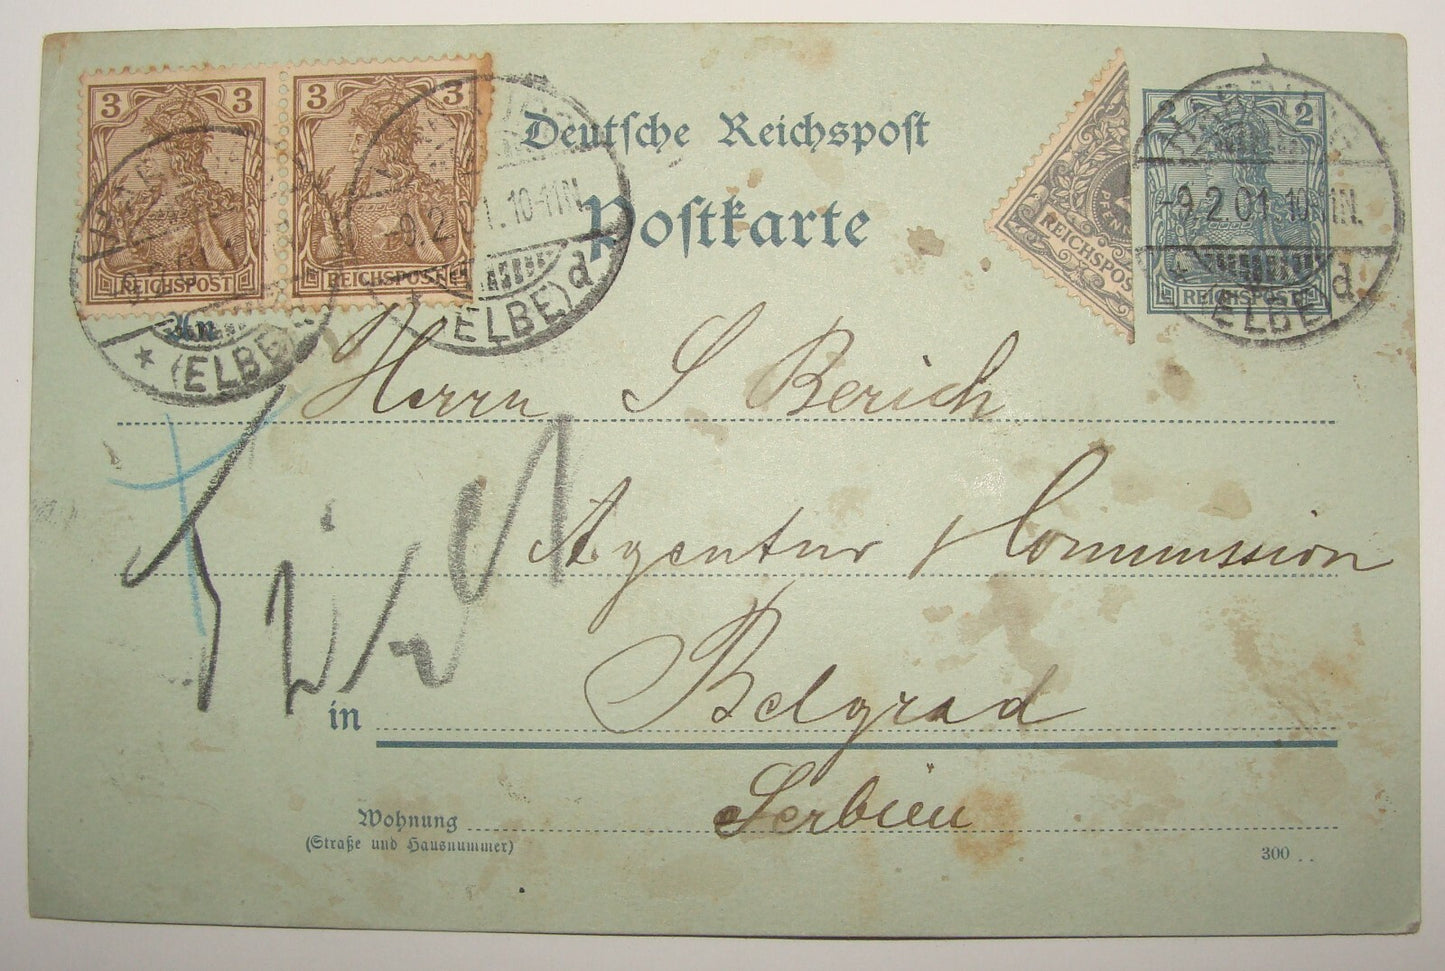 3 3
REICHSPOST
3 3
REICHSPOST
Deutsche Reichspost
Postkarte
REICHSPOST
2 2
REICHSPOST
-9.2.01.10-11N.
(ELBE)d
-9.2.01.10-11N.
(ELBE)d
* (ELBE)
An
Herrn S Berich
Agentur & Commission
in Belgrad
Serbien
Wohnung
(Straße und Hausnummer)
300